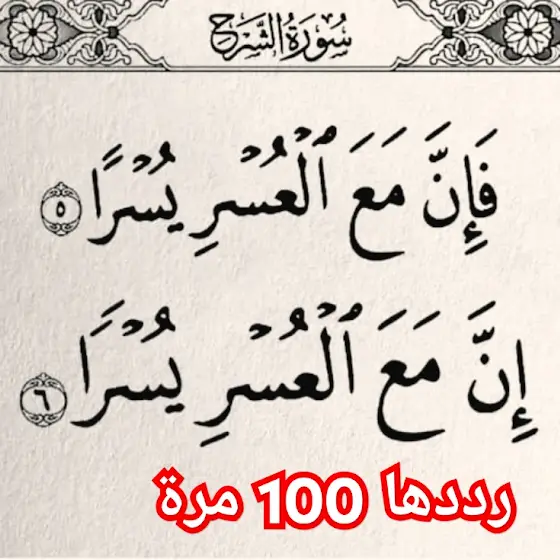 سُورَةُ الشَّرْحِ
فَإِنَّ مَعَ ٱلْعُسْرِ يُسْرًا ٥
إِنَّ مَعَ ٱلْعُسْرِ يُسْرًا ٦
رددها 100 مرة